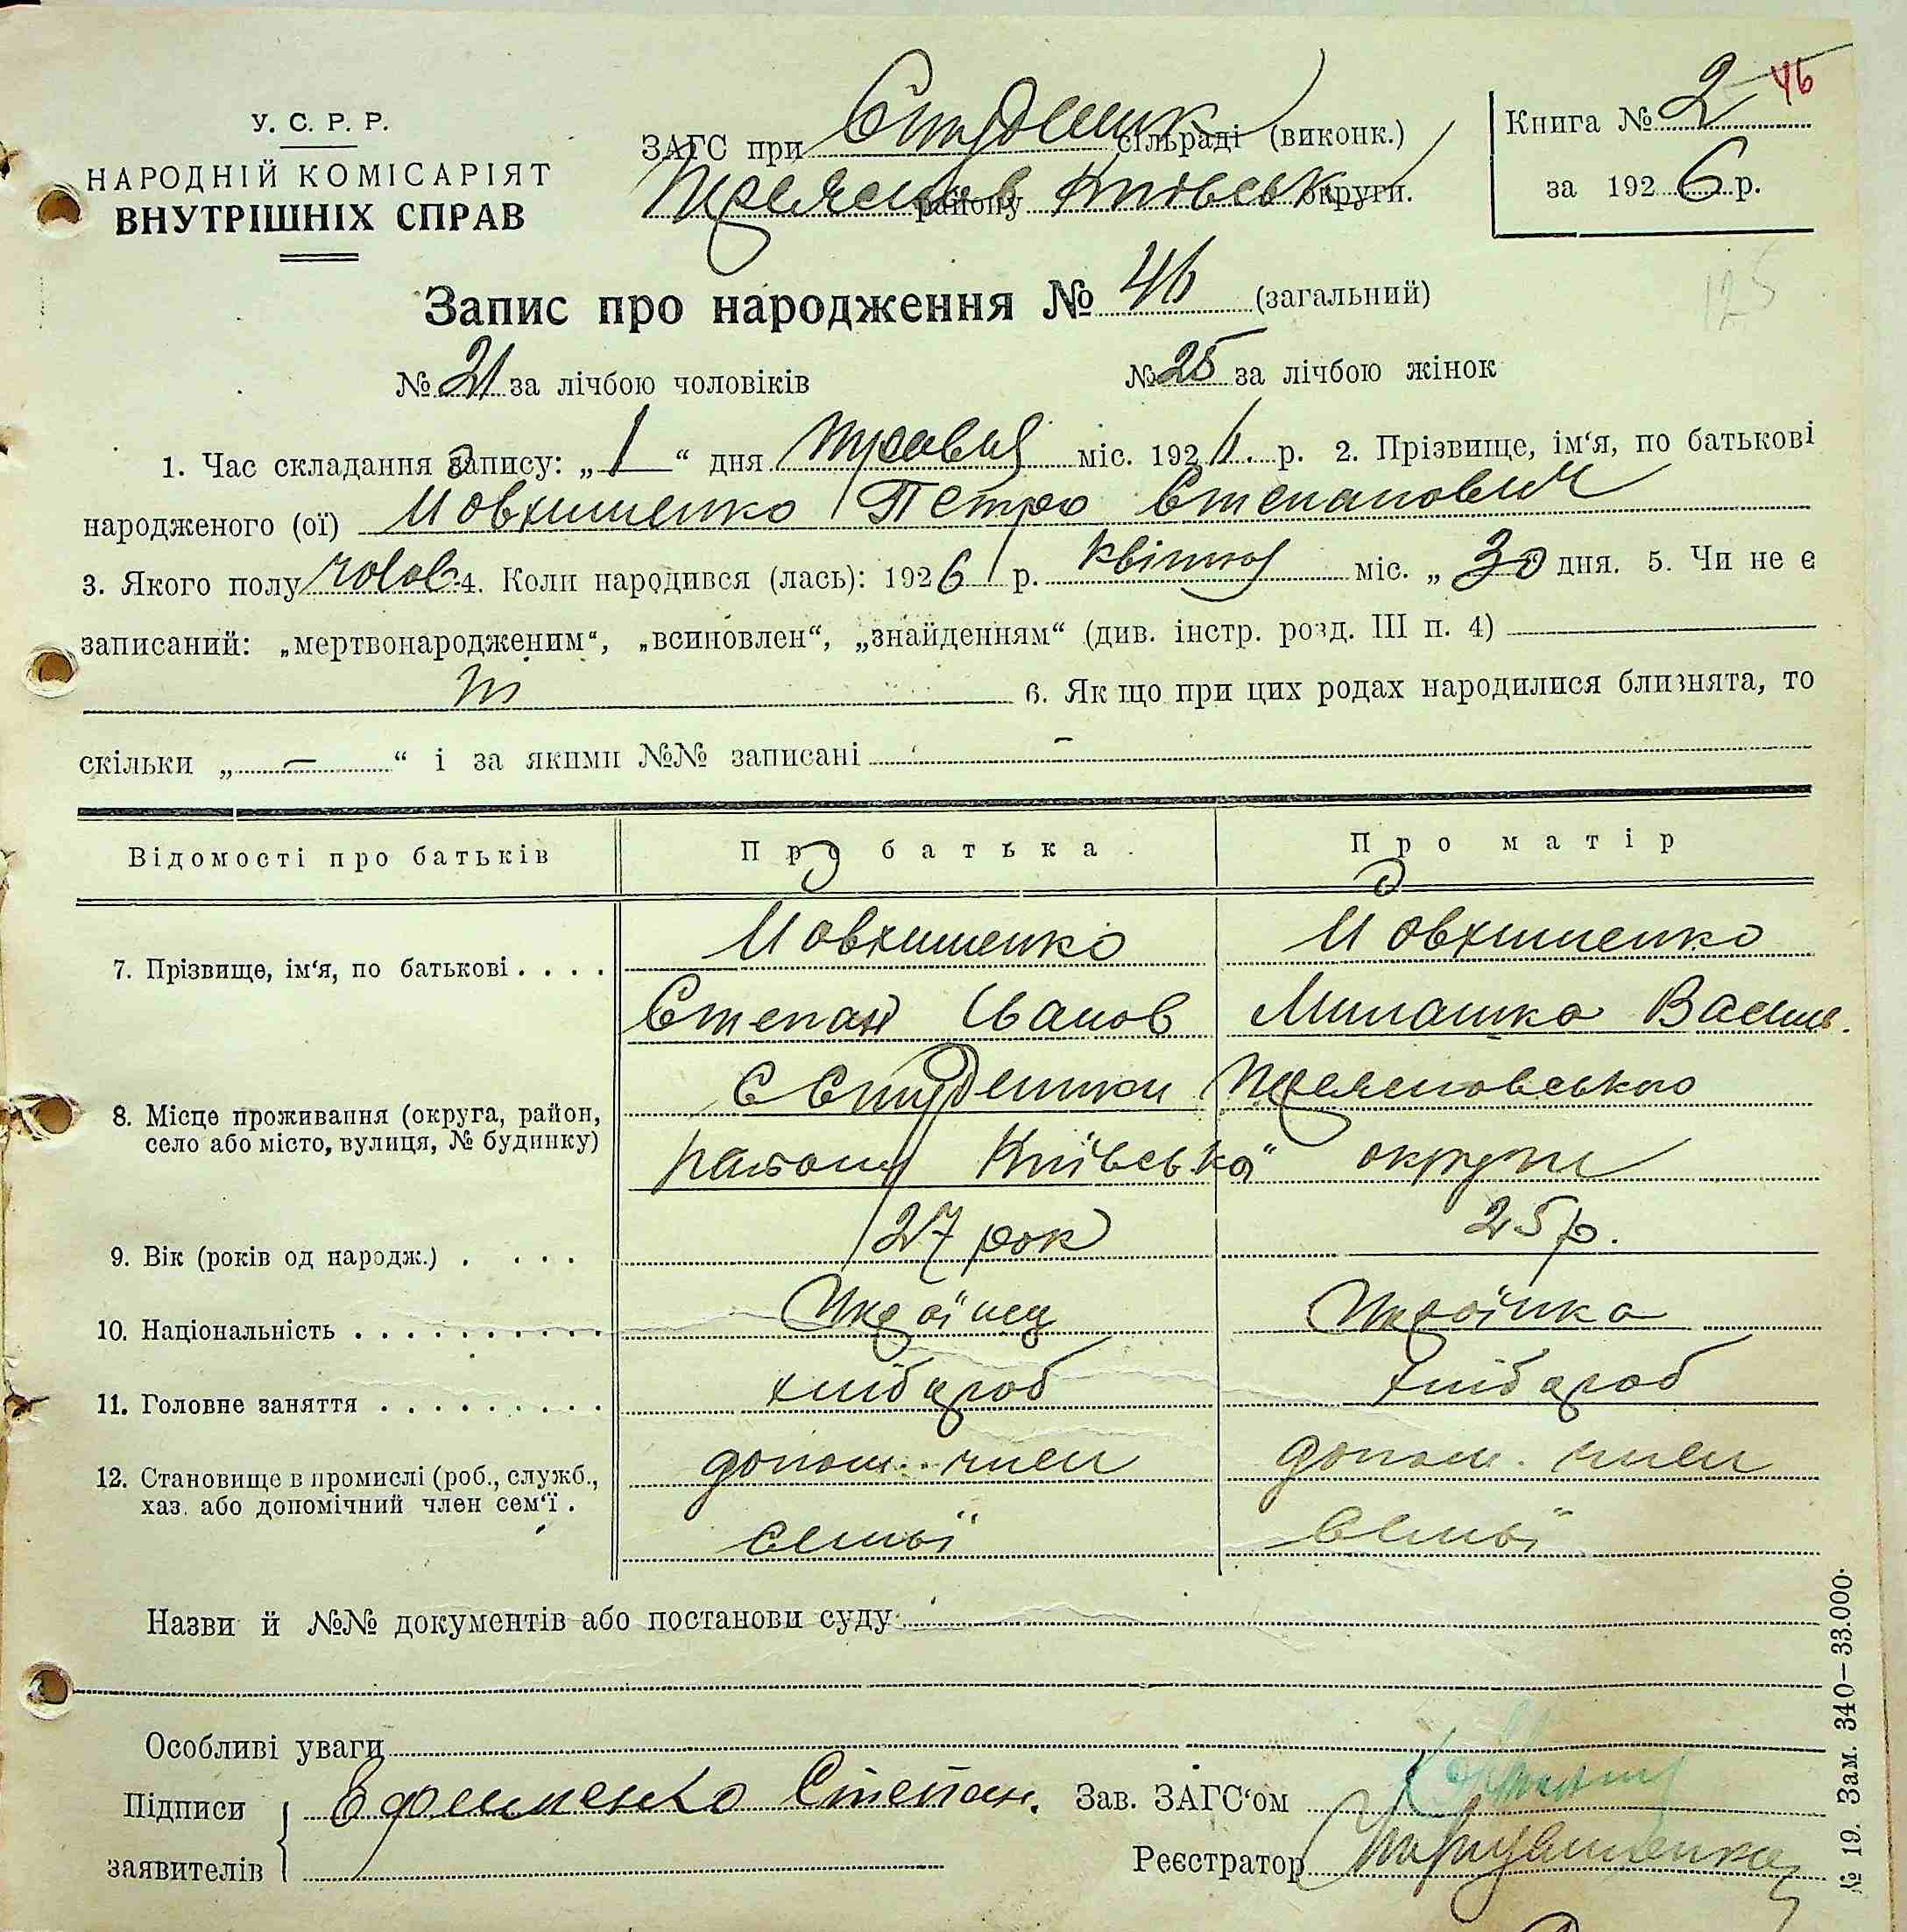 46
У. С. Р. Р.
НАРОДНІЙ КОМІСАРІЯТ
ВНУТРІШНІХ СПРАВ
ЗАГС при Студеник сільраді (виконк.)
району Київськ округи.
Книга № 2
за 1926 р.
125
Запис про народження № 46 (загальний)
№ 21 за лічбою чоловіків № 25 за лічбою жінок
1. Час складання запису: „1“ дня травня міс. 192 р. 2. Прізвище, ім‘я, по батькові
народженого (ої) Йовхименко Петро Степанович
3. Якого полу чолов. 4. Коли народився (лась): 1926 р. квітня міс. „30 дня. 5. Чи не є
записаний: „мертвонародженим“, „всиновлен“, „знайденням“ (див. інстр. розд. III п. 4)
6. Як що при цих родах народилися близнята, то
скільки „ — “ і за якими №№ записані —
Відомості про батьків Про батька Про матір
7. Прізвище, ім‘я, по батькові . . . . Йовхименко Йовхименко
Степан Іванов Милашка Васил.
8. Місце проживання (округа, район, село або місто, вулиця, № будинку) с Студеники
району Київської округи
9. Вік (років од народж.) . . . . 27 рок 25 р.
10. Національність . . . . . . . . . . Українец Українка
11. Головне заняття . . . . . . . . . хлібороб хлібороб
12. Становище в промислі (роб., служб., хаз. або допомічний член сем‘ї . допом. член допом. член
семьї семьї
Назви й №№ документів або постанови суду
Особливі уваги
Підписи заявителів Ефименко Степан. Зав. ЗАГС‘ом
Реєстратор
№ 19. Зам. 340—33.000.